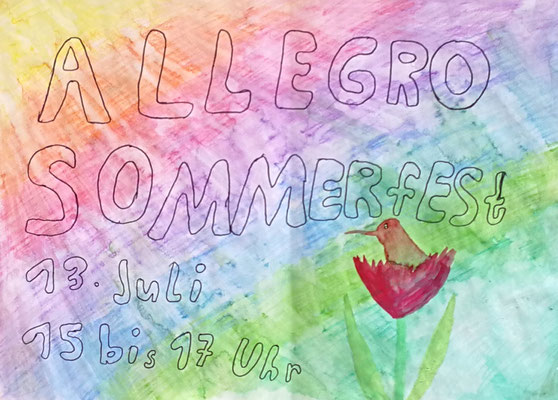 ALLEGRO
SOMMERfESt
13. Juli
15 bis 17 Uhr